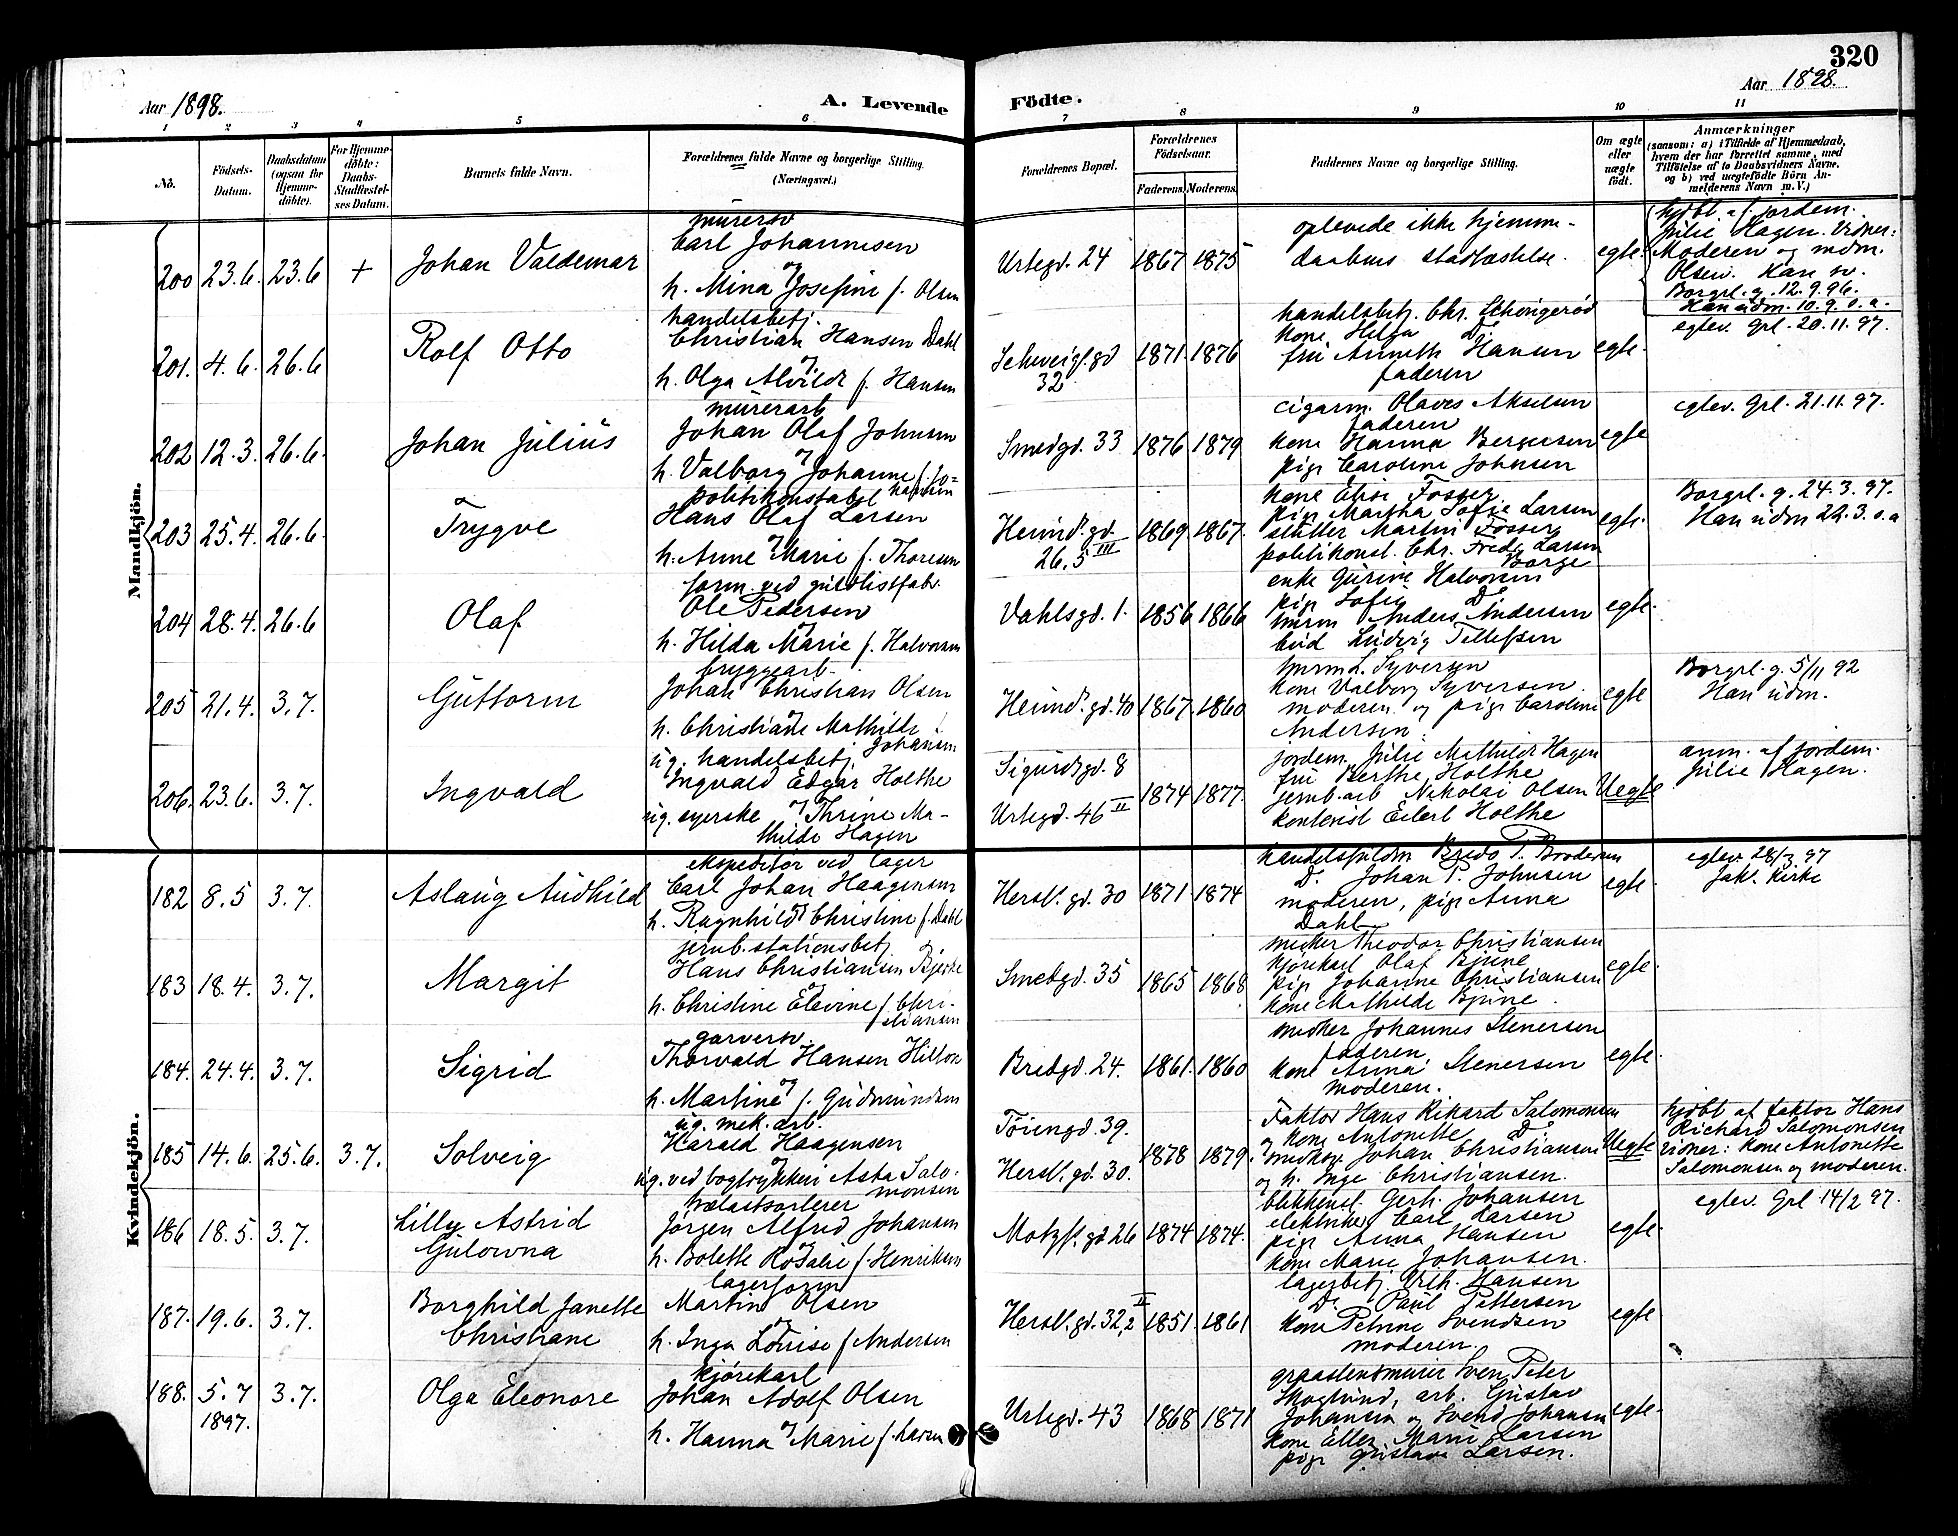 320
Aar 1898.
A. Levende
Födte.
Aar 1898.
1 2 3 4 5 6 7 8 9 10 11
No.
Födsels-
Datum.
Daabsdatum
(ogsaa for
Hjemme-
döbte).
For Hjemme-
döbte:
Daabs-
Stadfæstel-
ses Datum.
Barnets fulde Navn.
Forældrenes fulde Navne og borgerlige Stilling.
(Næringsvei.)
Forældrenes Bopæl.
Forældrenes
Födselsaar.
Faderens.
Moderens.
Faddernes Navne og borgerlige Stilling.
Om ægte
eller
uægte
födt.
Anmærkninger
(saasom: a) i Tilfælde af Hjemmedaab,
hvem der har forrettet samme, med
Tilföielse af to Daabsvidners Navne,
og b) ved uægtefödte Börn An-
melderens Navn m. V.)
Mandkjön.
200 23.6. 23.6 + Johan Valdemar
murersv
Carl Johannesen
og
h. Mina Josefine f. Olsen
Urtegd. 24 1867 1875
oplevede ikke hjemme-
daabens stadfæstelse.
egte.
hjdbt. af jordem.
Julie Hagen. Vidner:
Moderen og mdm.
Olsen. Han sv.
Borgrl. g. 12.9.96.
Han udm. 10.9. s.a.
201. 4.6. 26.6 Rolf Otto
handelsbetj.
Christian Hansen Dahl
og
h. Olga Alvilde f. Hansen
Schweig.gd
32
1871. 1876
handelsbetj. Chr.
kone Helga Do
fru Annette Hansen
faderen
egte.
egtev. Grl. 20.11.97.
202 12.3. 26.6. Johan Julius
murerarb
Johan Olaf Johnsen
og
h. Valborg Johanne f. Jo-
hansen
Smedgd. 33 1876 1879
cigarm. Olaves Akselsen
faderen
kone Hanna Bergersen
pige Caroline Johnsen
egte
egtev. Grl. 21.11.97.
203 25.4. 26.6. Trygve
politikonstabel
Hans Olaf Larsen
og
h. Anne Marie f. Thoresen
Heimd. gd.
26.5 III
1869 1867.
kone Elise Fosser
pige Martha Sofie Larsen
Martin Fosser
politikonst. Chr. Fredr Larsen
Borge
egte.
Borgrl. g. 24.3.97.
Han udm 22.3. s.a
204 28.4. 26.6 Olaf
form. ved guldlistfabr.
Ole Pedersen
og
h. Hilda Marie f. Halvorsen
Vahlsgd. 1. 1856 1866
enke Gurine Halvorsen
pige Sofie Do
tmrm Anders Andersen
bud Ludvig Tellefsen
egte.
205 21.4. 3.7. Guttorm
bryggearb.
Johan Christian Olsen
og
h. Christiane Mathilde f.
Johansen
Heimd. gd. 40 1867. 1860
tmrm. L. Syversen
kone Valborg Syversen.
moderen og pige Caroline
Andersen.
egte
Borgrl. g. 5/11 92
Han udm.
206. 23.6. 3.7. Ingvald
ug. handelsbetj.
Ingvald Edgar Holthe
og
ug. syerske Thrine Ma-
thilde Hagen
Sigurdsgd. 8
Urtegd. 46 II
1874 1877.
jordem. Julie Mathilde Hagen
fru Berthe Holthe
jernb. arb Nikolai Olsen
kontorist Eilert Holthe
Uegte
anm. af jordem.
Julie Hagen.
Kvindekjön.
182 8.5 3.7. Aslaug Audhild
ekspeditør ved lager
Carl Johan Haagensen
h. Ragnhild Christine f. Dahl
Hersl. gd. 30 1871 1874
handelsfuldm Bredo P. Brodersen
Do Johan P. Johnsen
moderen, pige Anna
Dahl
egte.
egtev. 28/3 97
Jak. Kirke
183 18.4. 3.7. Margit
jernb. stationsbetj
Hans Christiansen Bjerke
og
h. Christine Elevine f. Chri-
stiansen
Smedgd. 35 1865 1868
snedker Theodor Christiansen
kjørekarl Olaf Bjune
pige Johanne Christiansen
kone Mathilde Bjune.
egte.
184. 24.4. 3.7. Sigrid
garversv.
Thorvald Hansen Hilton
og
h. Martine f. Gudmundsen
Bredgd. 24. 1861. 1860
snedker Johannes Stenersen
faderen,
kone Anna Stenersen
moderen.
egte.
185 14.6. 25.6. 3.7. Solveig
ug. mek. arb.
Harald Haagensen
og
ug. ved bogtrykkeri Asta Salo-
monsen
Töiengd. 39.
Hersl. gd. 30.
1878 1879.
Faktor Hans Rikard Salomonsen
og kone Antonette Do
Johan Christiansen
og h. Inge Christiansen.
Uegte
hjdbt af faktor Hans
Richard Salomonsen
vidner: kone Antonette
Salomonsen og moderen.
186 18.5. 3.7. Lilly Astrid
Gulowna
Jörgen Alfred Johansen
og
h. Bolette Rosalie f. Henriksen
Motzf. gd 26 1874 1874.
blikkensl. Gerh. Johansen
elektriker Carl Larsen
pige Anna Hansen
kone Marie Johansen.
egte.
egtev. Grl 14/2 97.
187. 19.6. 3.7. Borghild Janette
Christiane
lagerform
Martin Olsen
og
h. Inga Louise f. Andersen
Hersl. gd. 32, 2 II 1851. 1861
lagerbetj. Vilh. Hansen
Do Paul Pettersen
kone Petrine Svendsen
moderen.
egte
188. 5.7
1897.
3.7. Olga Eleonore
kjörekarl
Johan Adolf Olsen
og
h. Hanna Marie f. Larsen
Urtegd. 43 1868 1871
graastensmurer Sven Peter
Skoglund, arb. Gustav
Johansen og Svend Johansen
kone Ellen Marie Larsen
pige Gustava Larsen.
egte.